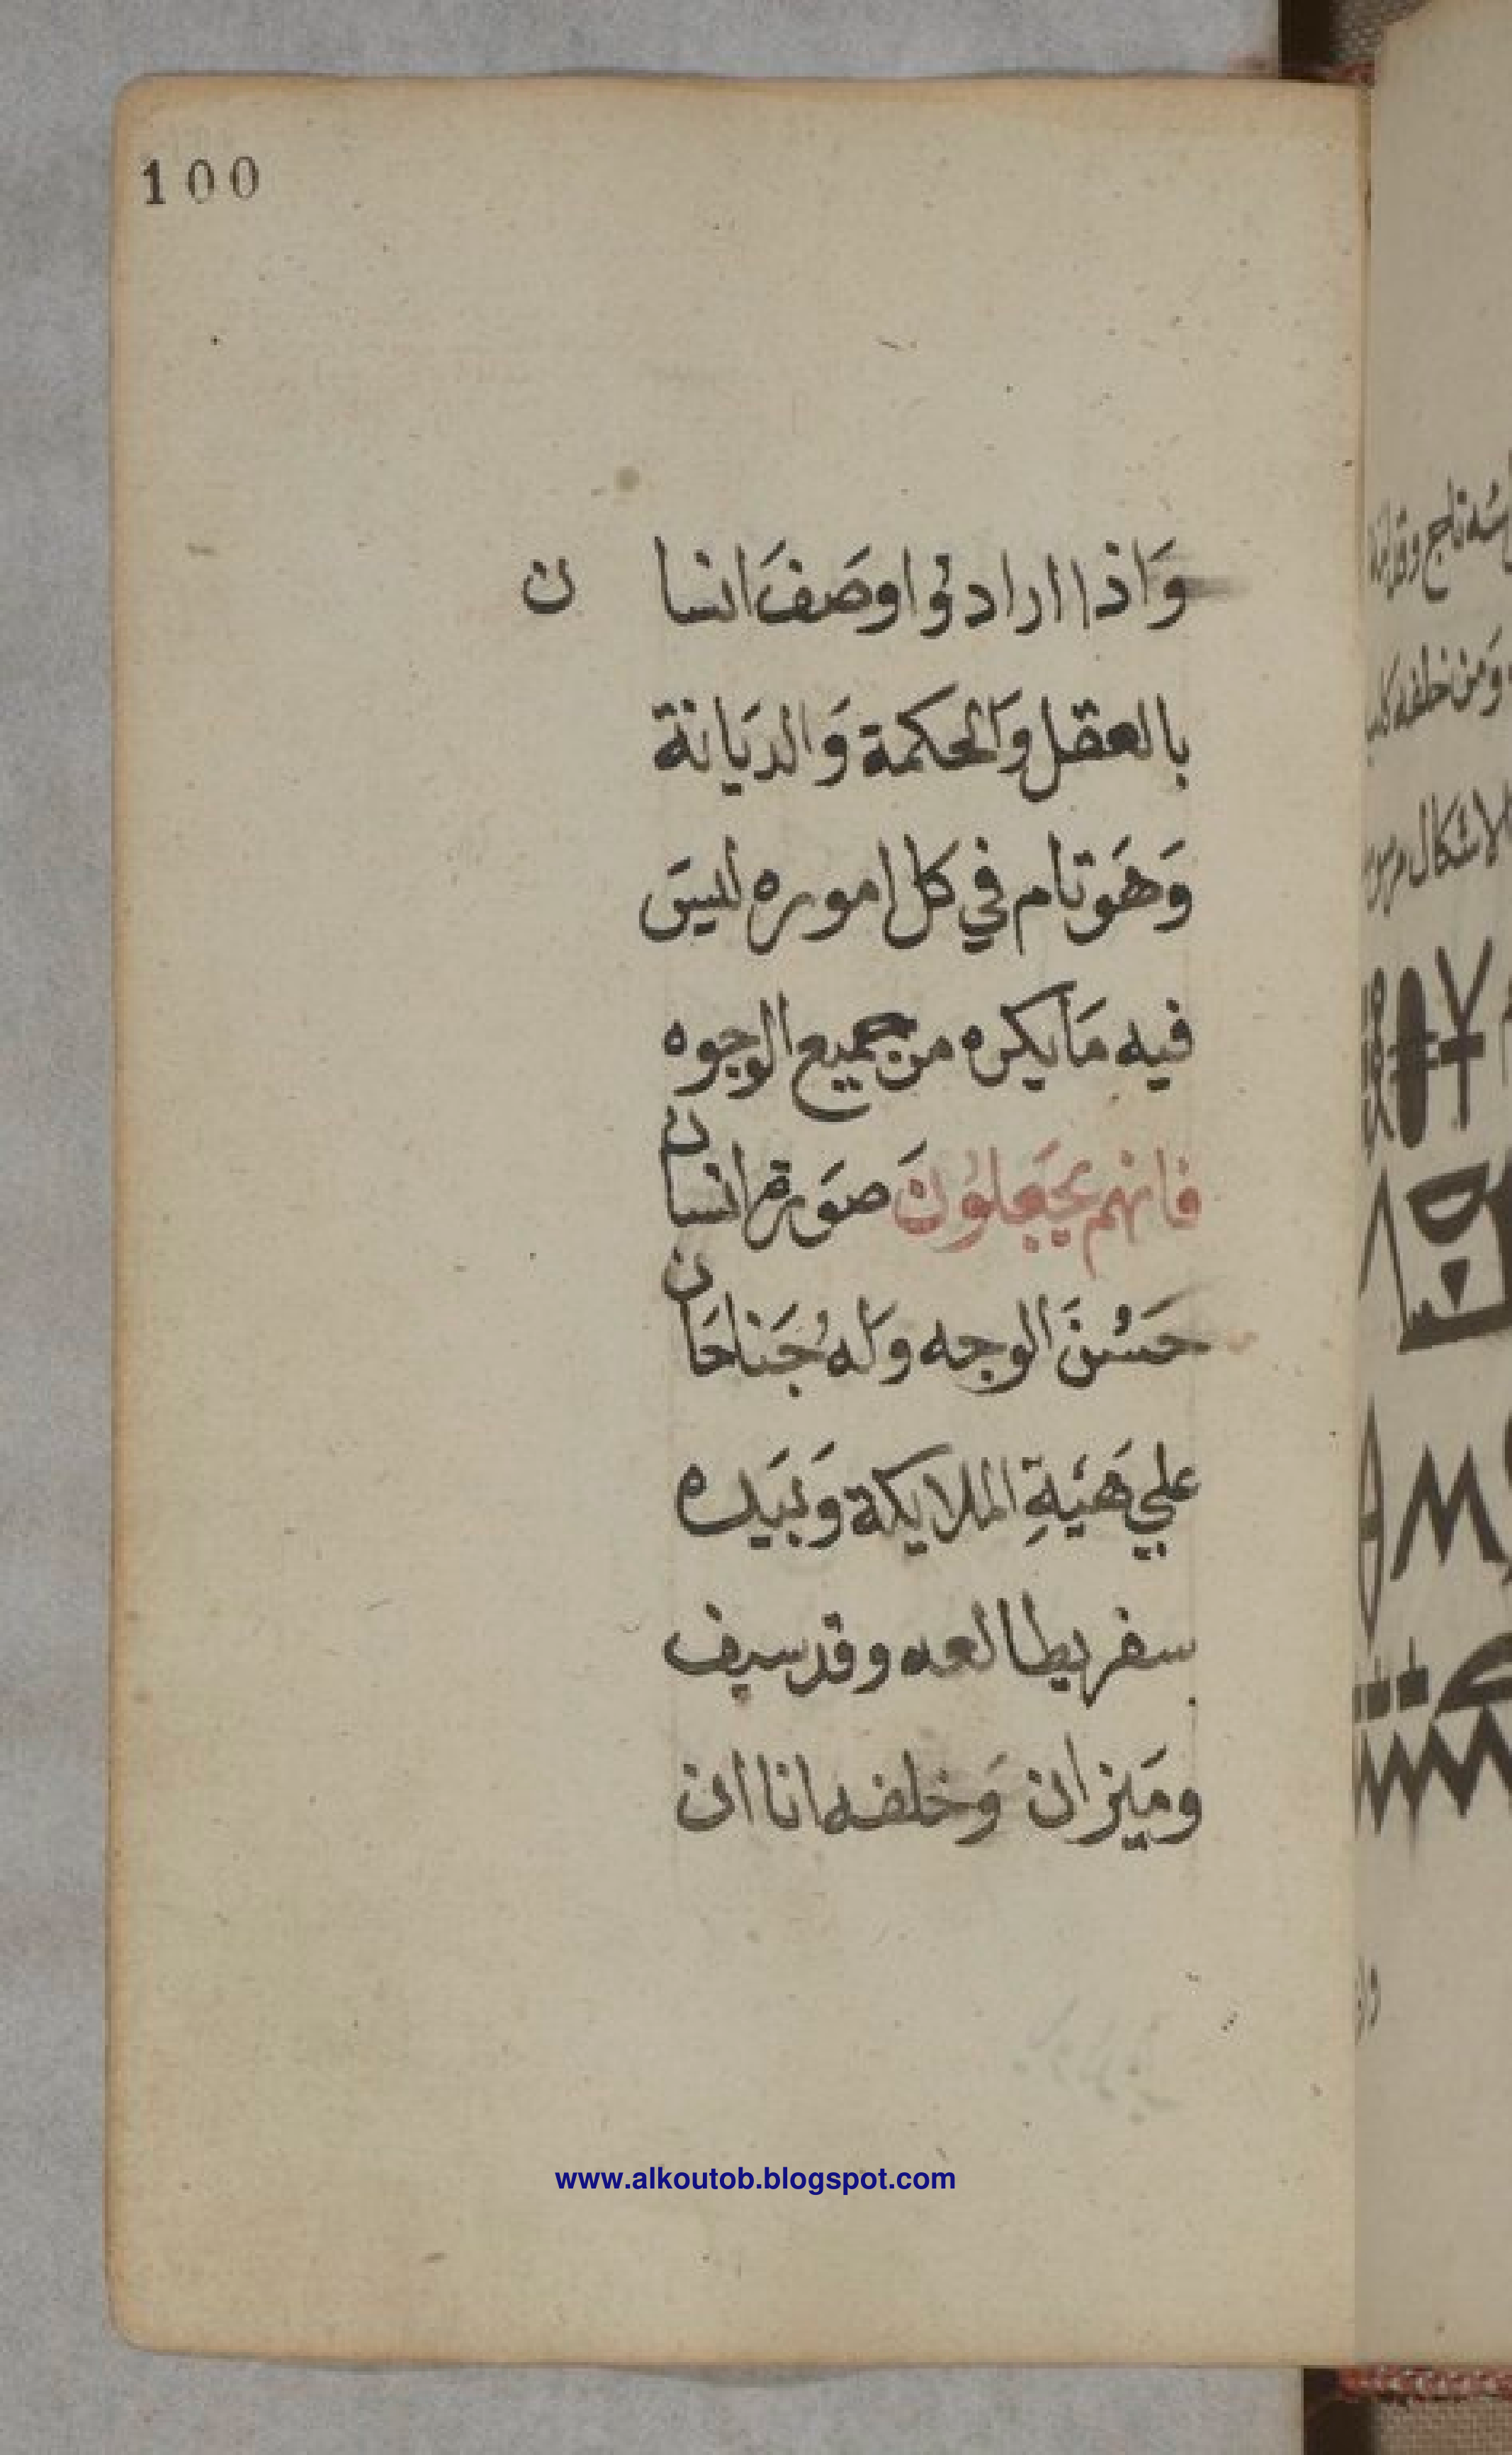 100
وَاذا ارادوُا وصَفَ انسا ن
بالعقل وَالحكمة وَالديَانة
وَهَو تام في كل اموره ليسَ
فيه مَا يكره من جميع الوجوه
فانهم يجَعلوُنَ صوَرة انسان
حسَنُ الوجه وَلهُ جَناحَان
علي هَيئةِ الملايكة وَبيَده
سفر يطالعه وقد سيف
وميَزان وَخلفه اناان
www.alkoutob.blogspot.com